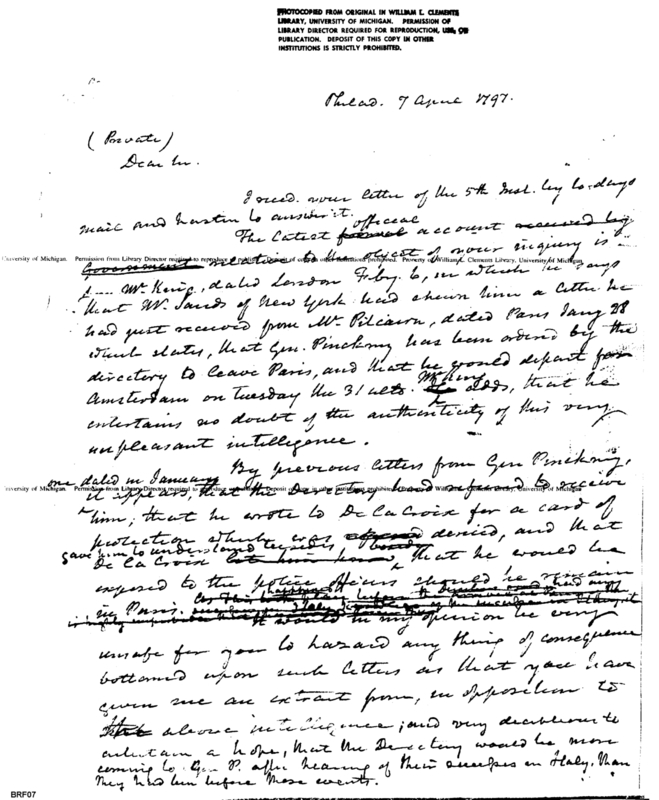 PHOTOCOPIED FROM ORIGINAL IN WILLIAM L. CLEMENTS
LIBRARY, UNIVERSITY OF MICHIGAN. PERMISSION OF
LIBRARY DIRECTOR REQUIRED FOR REPRODUCTION, USE, OR
PUBLICATION. DEPOSIT OF THIS COPY IN OTHER
INSTITUTIONS IS STRICTLY PROHIBITED.
Philad. 7 April 1797.
(Private)
Dear Sir.
I recd. your letter of the 5th Inst. by to-days
mail and hasten to answer it.
official
The latest formal account received by
Government relative to the object of your inquiry is
Mr. King, dated London Feby. 6, in which he says
that Mr. Sands of New York had shewn him a letter he
had just received from Mr. Pitcairn, dated Paris Jany 28
which states, that Gen. Pinckney has been ordered by the
directory to leave Paris, and that he would depart for
Mr. King
Amsterdam on Tuesday the 31 ulto. adds, that he
entertains no doubt of the authenticity of this very
unpleasant intelligence.
By previous letters from Gen Pinckney,
one dated in January
it appears, that the Directory had refused to receive
him; that he wrote to De La Croix for a card of
protection which was denied, and that
gave him to understand besides
De La Croix let him know, that he would be
exposed to the police officers should he remain
in Paris.
It would in my opinion be very
unsafe for you to hazard any thing of consequence
bottomed upon such letters as that you have
given me an extract from, in opposition to
above intelligence; and very doubtful to
entertain a hope, that the Directory would be more
coming to Gen. P. after hearing of their successes in Italy, than
they had been before those events.
BRF07